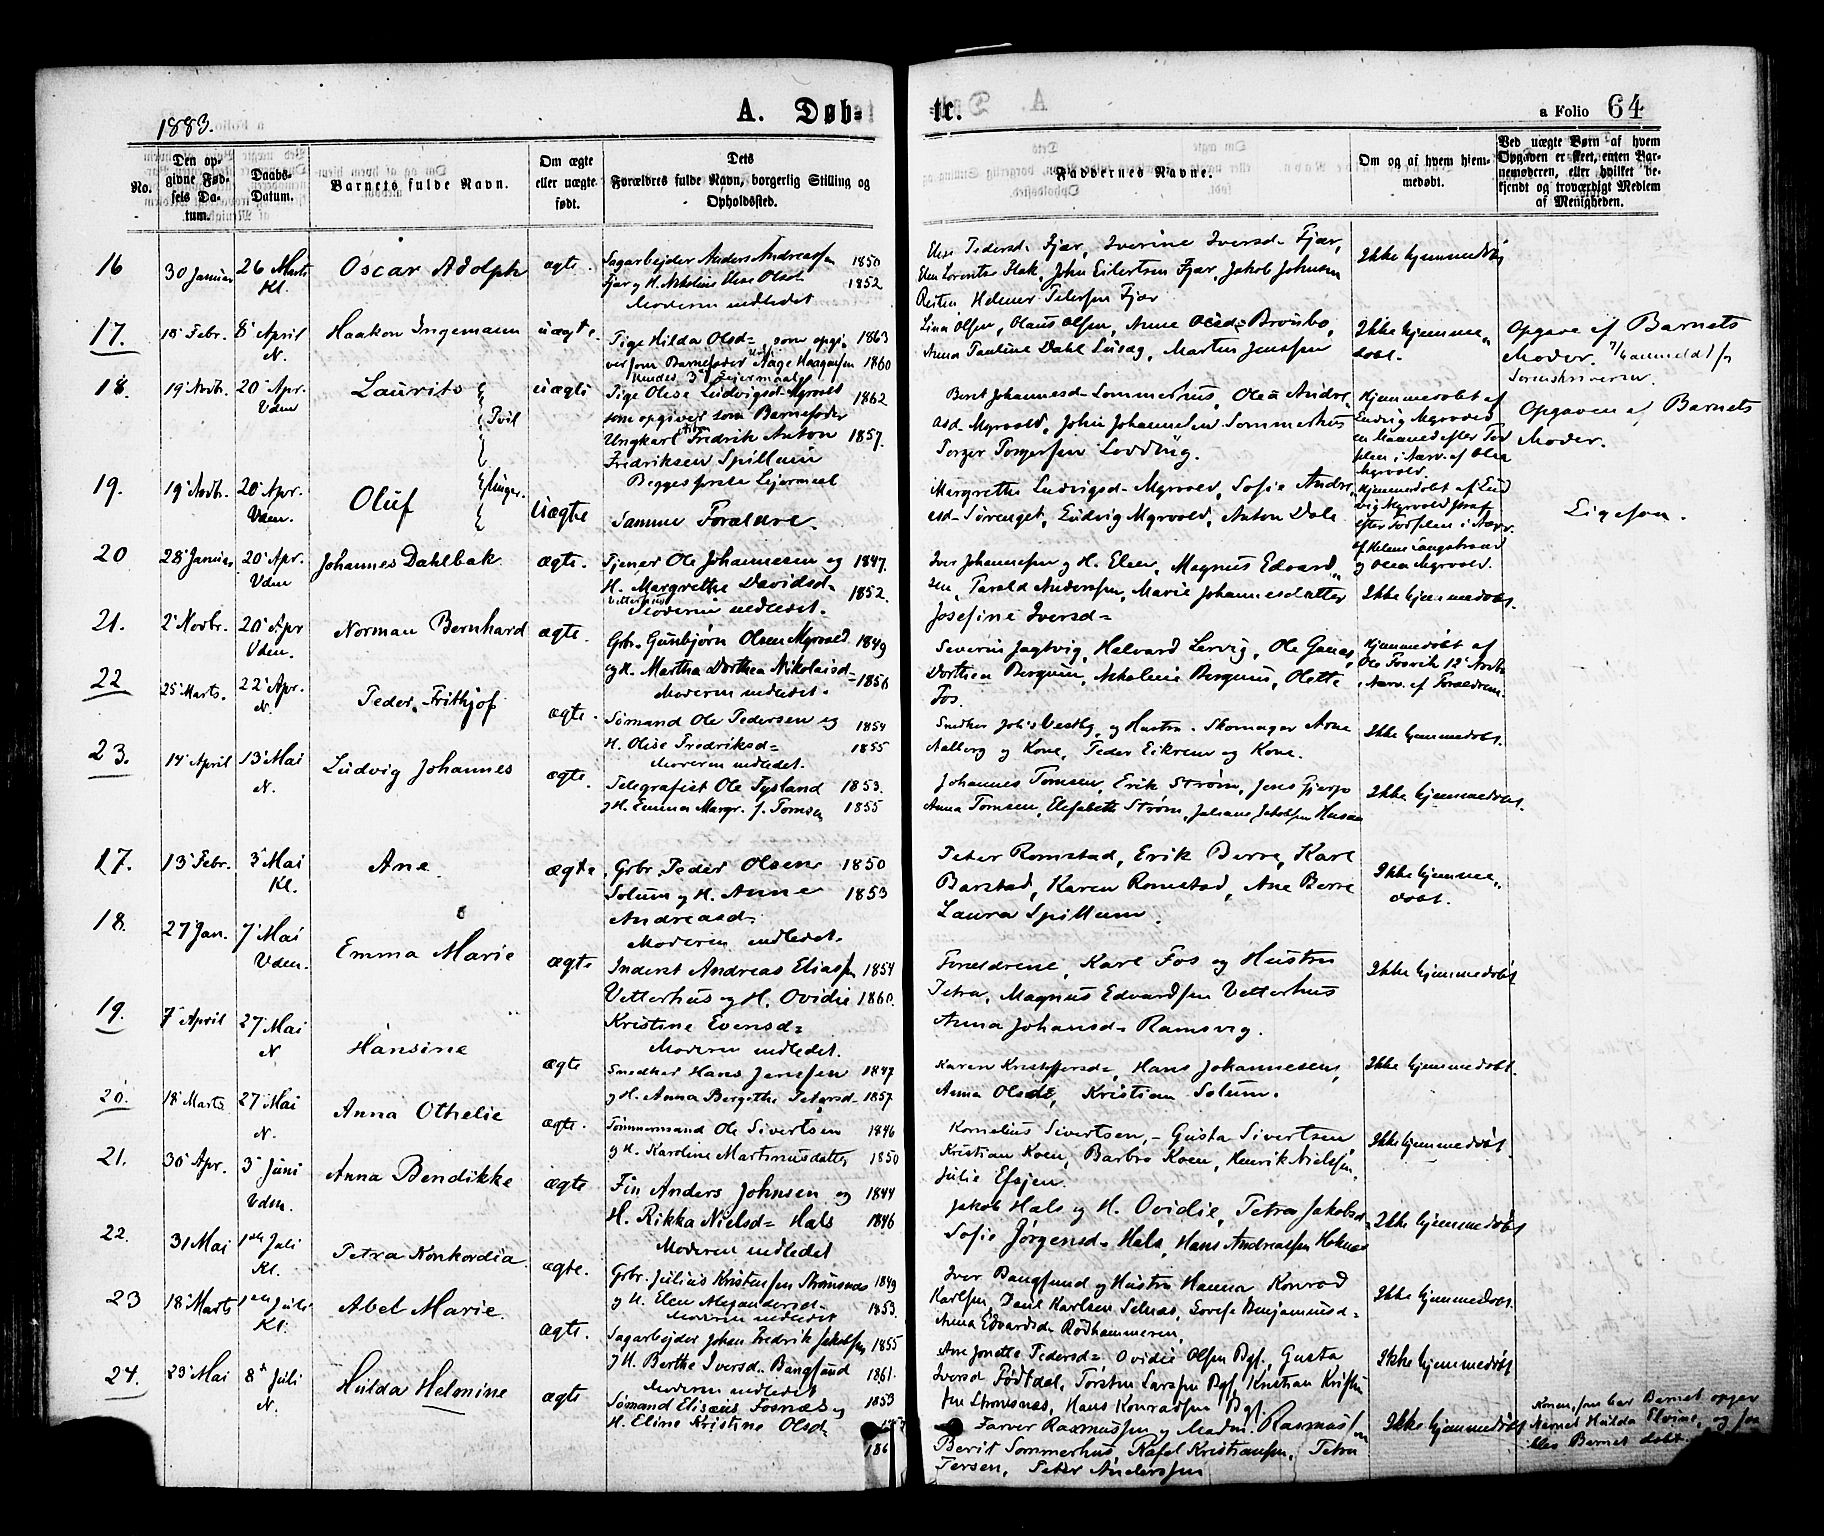 1883.
A. Døb-
te.
a Folio 64
No.
Den op-
givne Fød-
sels Da-
tum.
Daabs-
Datum.
Barnets fulde Navn.
Om ægte
eller uægte
født.
Dets
Forældres fulde Navn, borgerlig Stilling og
Opholdssted.
Faddernes Navne.
Om og af hvem hjem-
medøbt.
Ved uægte Børn af hvem
Opgaven er skeet, enten Bar-
nemoderen, eller hvilket be-
kjendt og troværdigt Medlem
af Menigheden.
16
30 Januar
26 Marts
Kl.
Oscar Adolph
ægte.
Sagarbejder Anders Andreasen 1850
Fjær og H. Nikoline Elise Olsd. 1852
Moderen indledet
Elise Pedersd. Fjær, Iverine Iversd. Fjær,
Elen Lorentse Flak, John Eilertsen Fjær, Jakob Johnsen
Helmer Petersen Fjær
Ikke hjemmedøbt
17.
15 Febr.
8 April
N.
Haakon Ingemann
uægte.
Pige Hilda Olsd., som opgi- 1863
ver som Barnefader Aage Haagensen 1860
hendes 3 Leiermaal
Lina Olsen, Olaus Olsen, Anne Olsd. Broubo,
Anna Pauline Dahl, Martin Jenssen
Ikke hjemme-
døbt.
Opgave af Barnets
Moder. anmeldt f
Sorenskriveren.
18.
19 Novbr.
20 Apr.
Vdm
Laurits
Tvil
uægte
Pige Olise Ludvigsd. Myrvold 1862
som opgiver som Barnefader
Ungkarl Fredrik Anton 1857.
Fredriksen Spillum
Begges første Lejermaal
Beret Johannesd. Sommerhus, Olea Andre-
asd. Myrvold, John Johannesen Sommerhus
Torger Torgersen Lodding.
Hjemmedøbt af
Ludvig Myrvold
en Maaned efter Fød
selen i Nærv. af Olea
Myrvold.
Opgaven af Barnets
Moder.
19.
19 Novbr.
20 Apr.
Vdm.
Oluf
linger
Uægte
Samme Forældre.
Margrethe Ludvigsd. Myrvold, Sofie Andre-
asd. Sørenget, Ludvig Myrvold, Anton Dale
Hjemmedøbt af Lud
vig Myrvold straf
efter Fødselen i Nærv.
af Helene Langstrand
og Olea Myrvold.
Ligesom.
20
28 Januar
20 Apr.
Vdm
Johannes Dahlbak
ægte.
Tjener Ole Johannesen og 1847.
H. Margrethe Davidsd. 1852.
Vetterhus
Moderen indledet.
Iver Johannesen og H. Elen, Magnus Edvard-
sen, Parald Andersen, Marie Johannesdatter
Josefine Iversd.
Ikke hjemmedøbt.
21.
2 Novbr.
20 Apr
Vdm.
Norman Bernhard
ægte.
Grbr. Gunbjørn Olsen Myrvold 1849
og H. Martha Dorthea Nikolaisd. 1856
Moderen indledet.
Severin Jagtvig, Halvard Lervig, Ole Ganes,
Dorthea Bergum, Nikoline Bergum, Olette
Fos.
Hjemmedøbt af
Ole Fosvik 12 Novbr
i Nærv. af Forældrene.
22
25 Marts.
22 Apr.
N.
Peder Frithjof
ægte.
Sømand Ole Pedersen og 1854
H. Olise Fredriksd. 1855
Moderen indledet.
Snedker Johs Vestby og Hustru. Skomager Arne
Aalberg og Kone, Peder Eikrem og Kone.
Ikke hjemmedøbt.
23.
14 April
13 Mai
N.
Ludvig Johannes
ægte.
Telegrafist Ole Tysland 1853.
og H. Emma Margr. f. Tomsen 1855
Johannes Tomsen, Erik Strøm, Jens Fjerpo
Anna Tomsen, Elisabeth Strøm, Juliane Jakobsen Husaa
Ikke hjemmedøbt.
17.
13 Febr.
3 Mai
Kl.
Ane
ægte
Grbr. Peder Olsen 1850
Solum og H. Anne 1853
Andreasd.
Moderen indledet.
Peter Romstad, Erik Berre, Karl
Barstad, Karen Romstad, Ane Berre
Laura Spillum.
Ikke hjemme-
døbt.
18.
27 Jan.
7 Mai
Vdm.
Emma Marie
ægte
Inderst Andreas Eliassen 1854
Vetterhus og H. Ovidie 1860.
Kristine Evensd.
Moderen indledet.
Forældrene, Karl Fos og Hustru
Petra, Magnus Edvardsen Vetterhus
Anna Johansd. Ramsvig.
Ikke hjemmedøbt
19.
7 April
27 Mai
N.
Hansine
ægte
Snedker Hans Jenssen 1847
og H. Anna Bergethe Petersd. 1857.
Karen Kristoffersd., Hans Johannesens,
Anna Olsd., Kristian Solum.
Ikke hjemmedøbt.
20.
18 Marts
27 Mai
N.
Anna Othelie
ægte.
Tømmermand Ole Sivertsen 1846
og H. Karoline Martinusdatter 1850
Kornelius Sivertsen, Gusta Sivertsen
Kristian Koen, Barbro Koen, Henrik Nielsen
Julie Efsjen.
Ikke hjemmedøbt.
21.
30 Apr.
3 Juni
Vdm.
Anna Bendikke
ægte
Fin Anders Johnsen og 1844
H. Rikka Nielsd. Hals 1846
Moderen indledet
Jakob Hals og H. Ovidie, Petra Jakobsd.
Sofie Jørgensd. Hals, Hans Andreassen Hoknes
Ikke hjemmedøbt
22.
31 Mai
1ste Juli
Kl.
Petra Konkordia
ægte.
Grbr. Julius Kristensen Strømsnes 1849
og H. Elen Alexandersd. 1853.
Moderen indledet
Iver Bangsund og Hustru Hanna Konrad
Karlsen, Paul Karlsen Selnæs, Lovise Benjaminsd.
Anna Edvardsd. Rødhammeren.
Ikke hjemmedøbt.
23
18 Marts
1ste Juli
Kl.
Abel Marie.
ægte.
Sagarbejder Johan Fredrik Jakobsen 1855
og H. Berthe Iversd. Bangsund 1861.
Moderen indledet
Ane Jonette Pedersd. Ovidie Olsen Bgs., Gusta
Iversd. Fødtdal, Torsten Larssen Bgs. Kristian Kristen
sen Strømsnæs, Hans Konradsen Bgs.
Ikke hjemmedøbt
24.
23 Mai
8 Juli
N.
Hilda Helonine
ægte
Sømand Elisæus Fosnæs og 1853
H. Eline Kristine Olsd.
186
Farver Rasmussen og Madm. Rasmussen
Berit Sommerhus, Rafel Kristiansen, Petra
Tersen, Peter Anderssen
Ikke hjemmedøbt
Barnet opgav
Navnet Hilda, og saa
blev Barnet døbt.